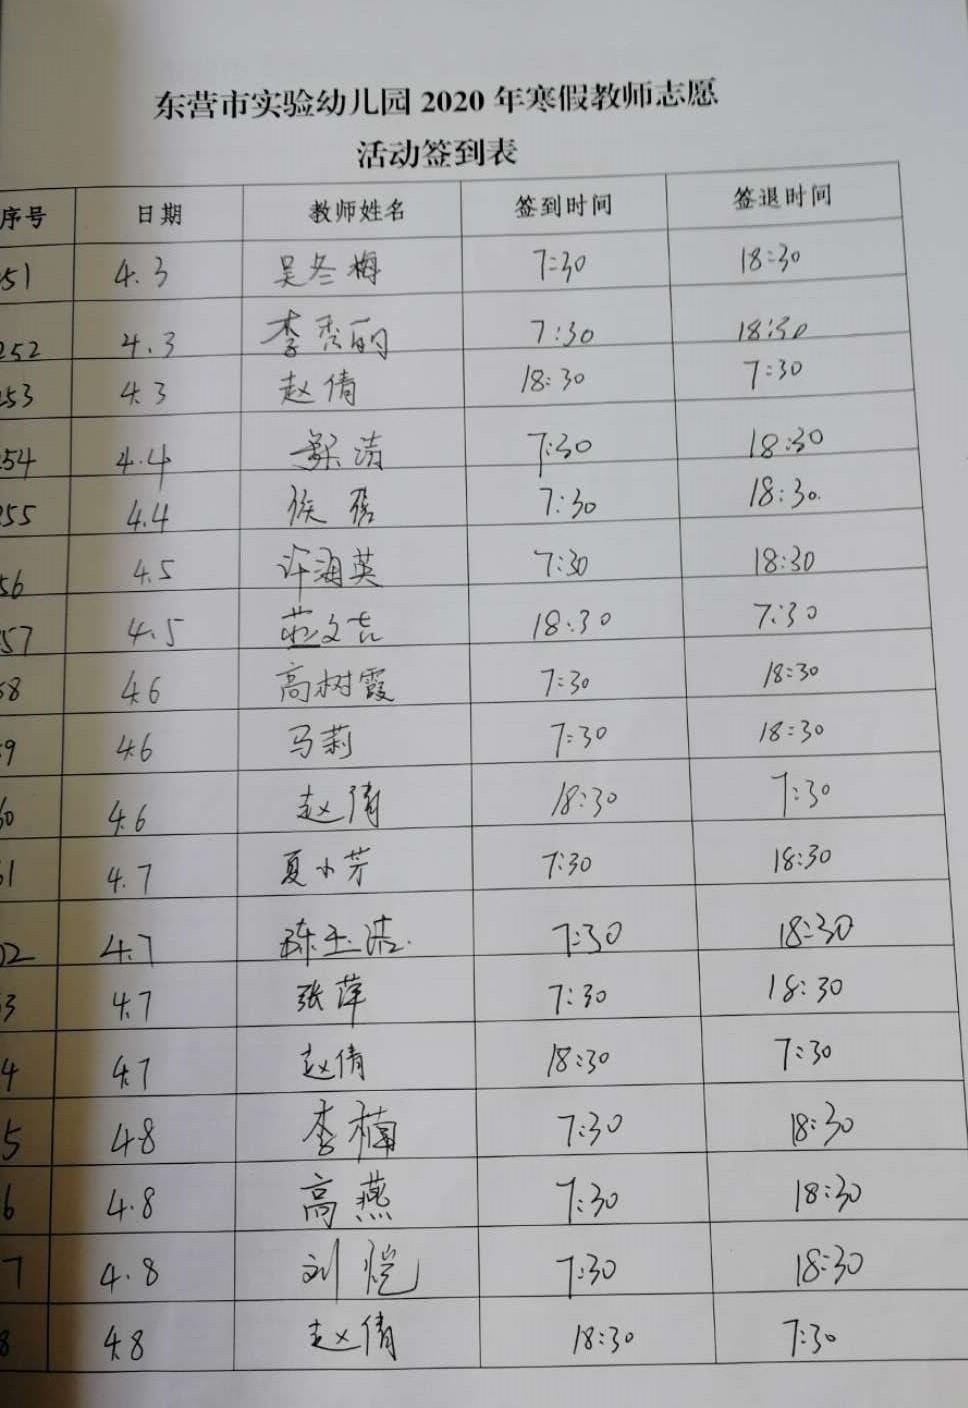 东营市实验幼儿园 2020 年寒假教师志愿
活动签到表
序号 日期 教师姓名 签到时间 签退时间
51 4.3 吴冬梅 7:30 18:30
252 4.3 李秀丽 7:30 18:30
253 4.3 赵倩 18:30 7:30
254 4.4 清 7:30 18:30
255 4.4 侯 7:30 18:30.
56 4.5 许海英 7:30 18:30
57 4.5 18:30 7:30
58 4.6 高树霞 7:30 18:30
59 4.6 马莉 7:30 18:30
60 4.6 赵倩 18:30 7:30
61 4.7 夏小芳 7:30 18:30
02 4.7 陈玉洁. 7:30 18:30
3 4.7 张萍 7:30 18:30
4 4.7 赵倩 18:30 7:30
5 4.8 李楠 7:30 18:30
6 4.8 高燕 7:30 18:30
7 4.8 刘恺 7:30 18:30
8 4.8 赵倩 18:30 7:30